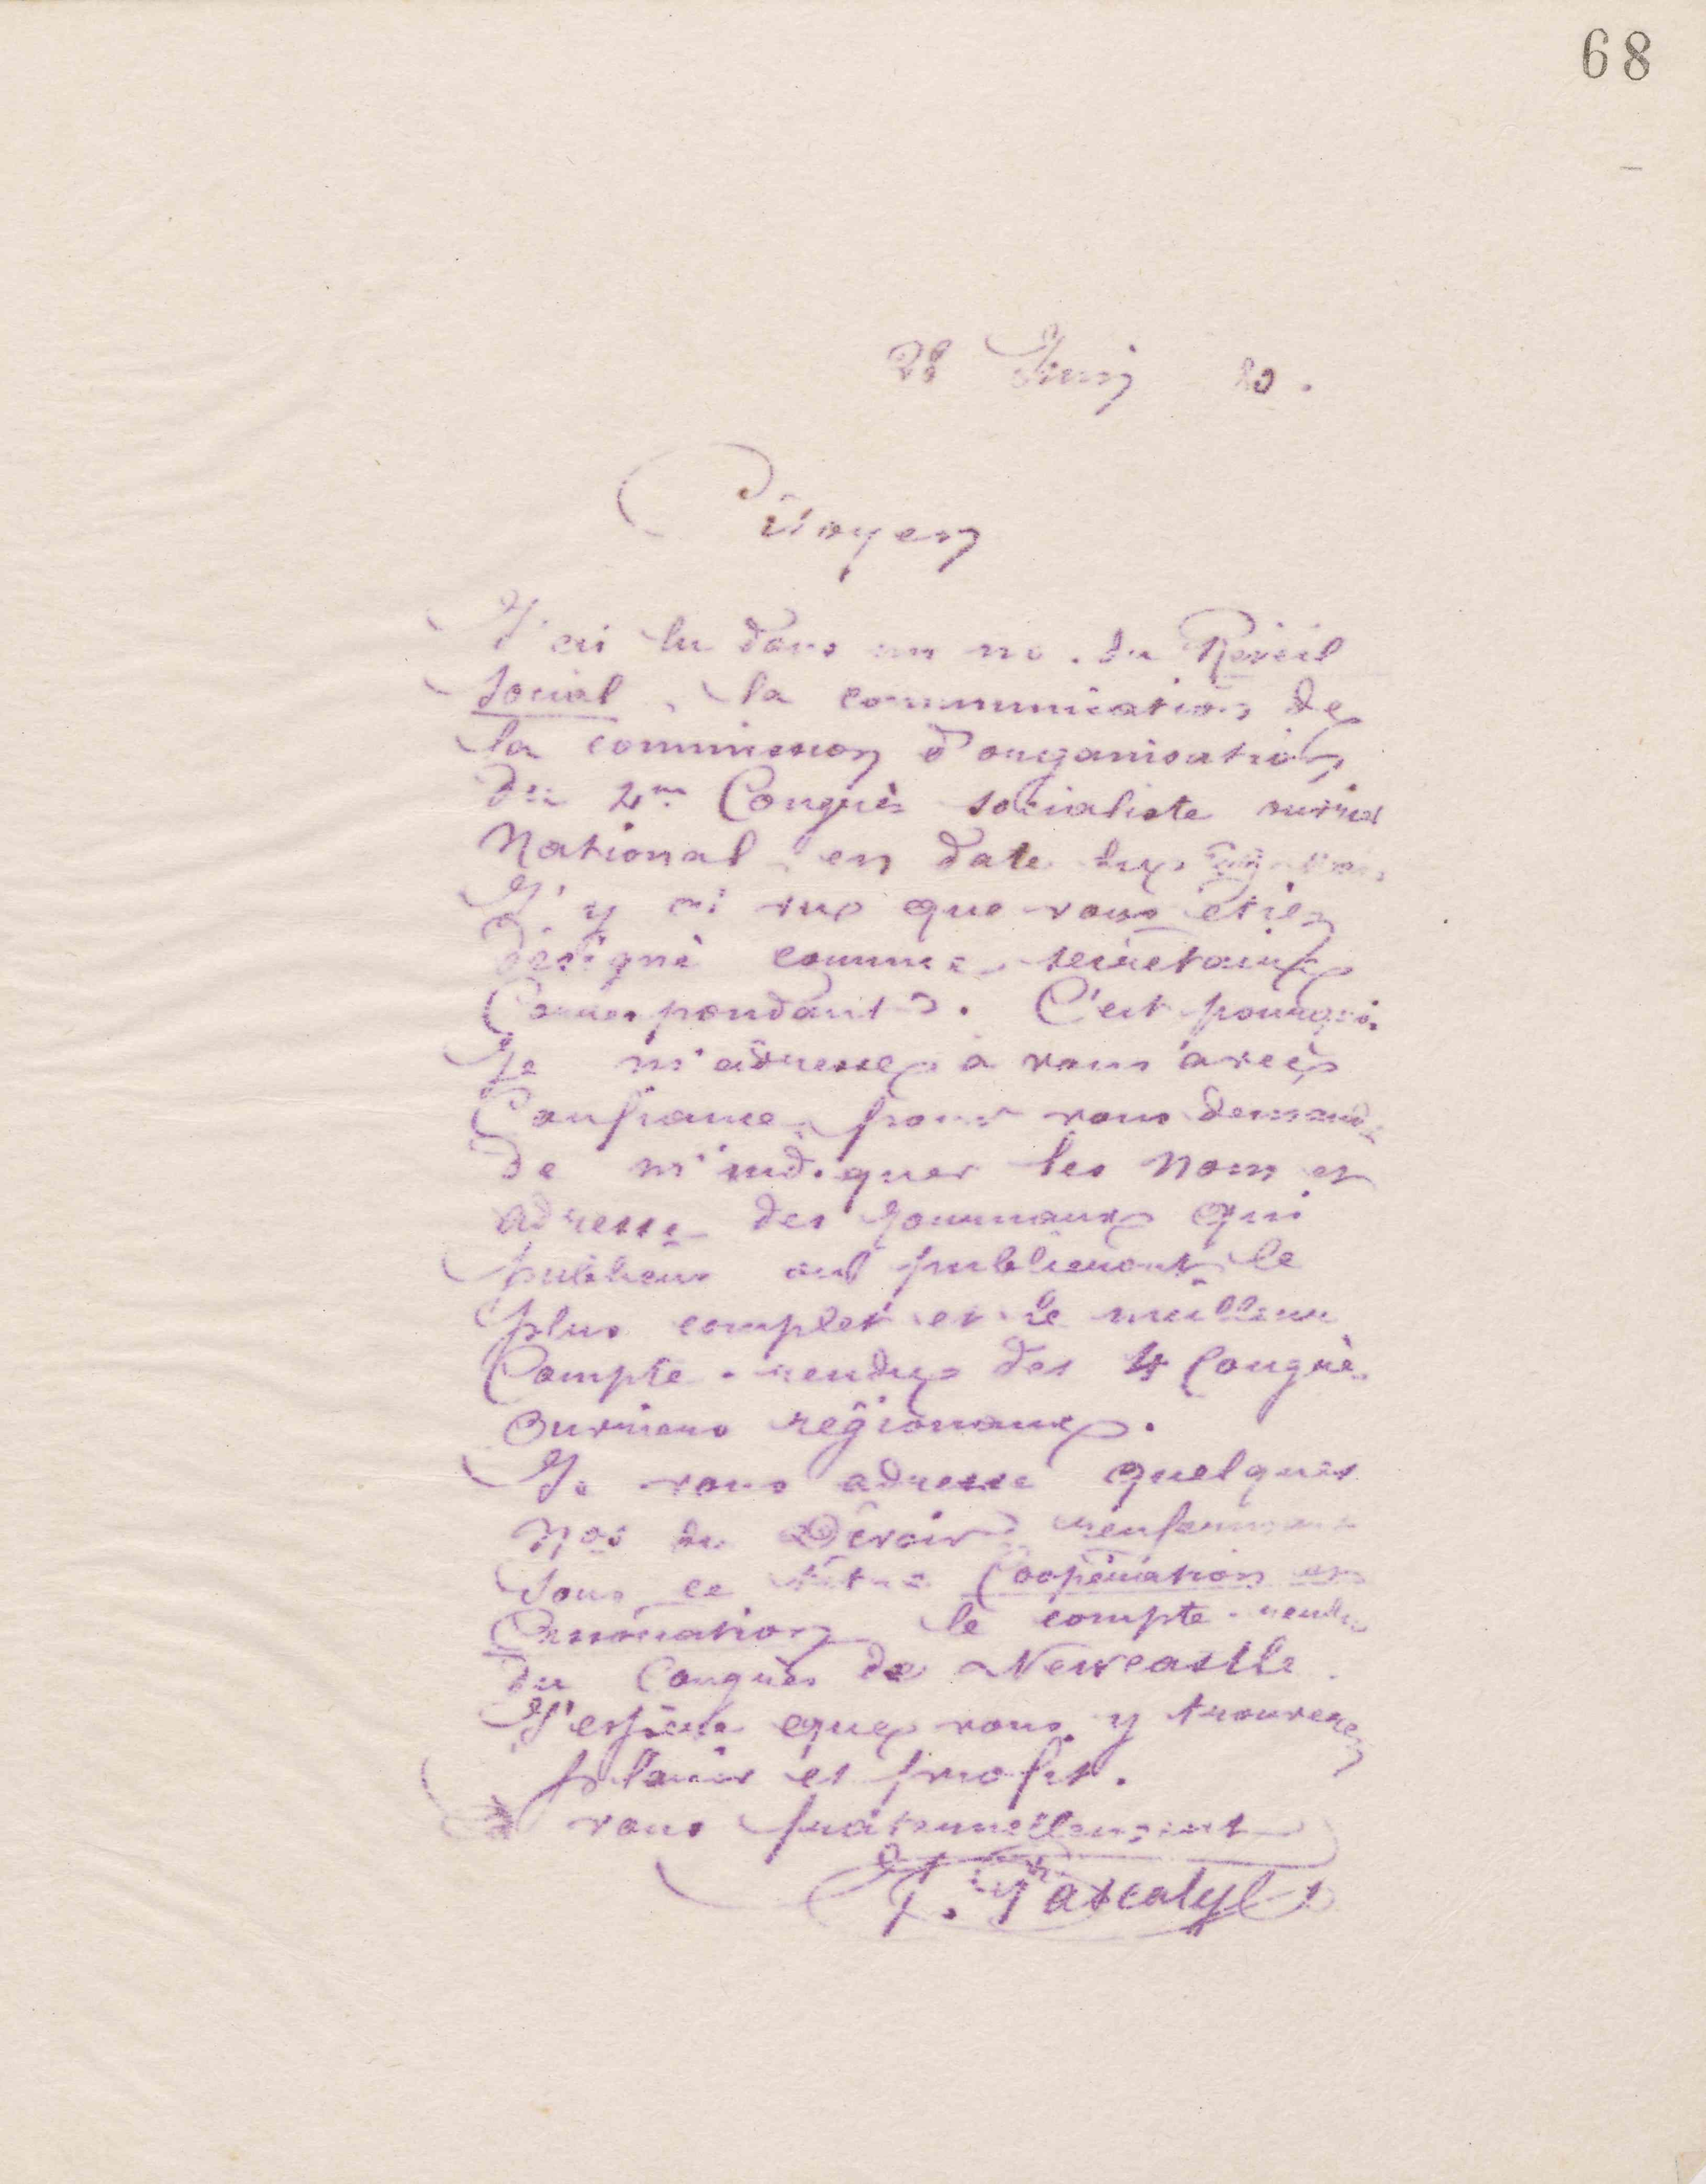 68
28 Juin 80.
Citoyen
J'ai lu dans un no. du Reveil
Social, la communication de
la commission d'organisation
du 4me Congrès socialiste ouvrier
National en date du
J'y ai vu que vous étiez
désigné comme secrétaire
Correspondant. C'est pourquoi
Je m'adresse à vous avec
Confiance pour vous demander
de m'indiquer les Nom et
adresse des journaux qui
publient ou publieront le
plus complet et le meilleur
Compte-rendu des 4 Congrès
Ouvriers régionaux.
Je vous adresse quelques
Nos du Devoir renfermant
Sous ce titre Coopération et
Association le compte-rendu
du Congrès de Newcastle.
J'espère que vous y trouverez
plaisir et profit.
à vous fraternellement
Pascaly